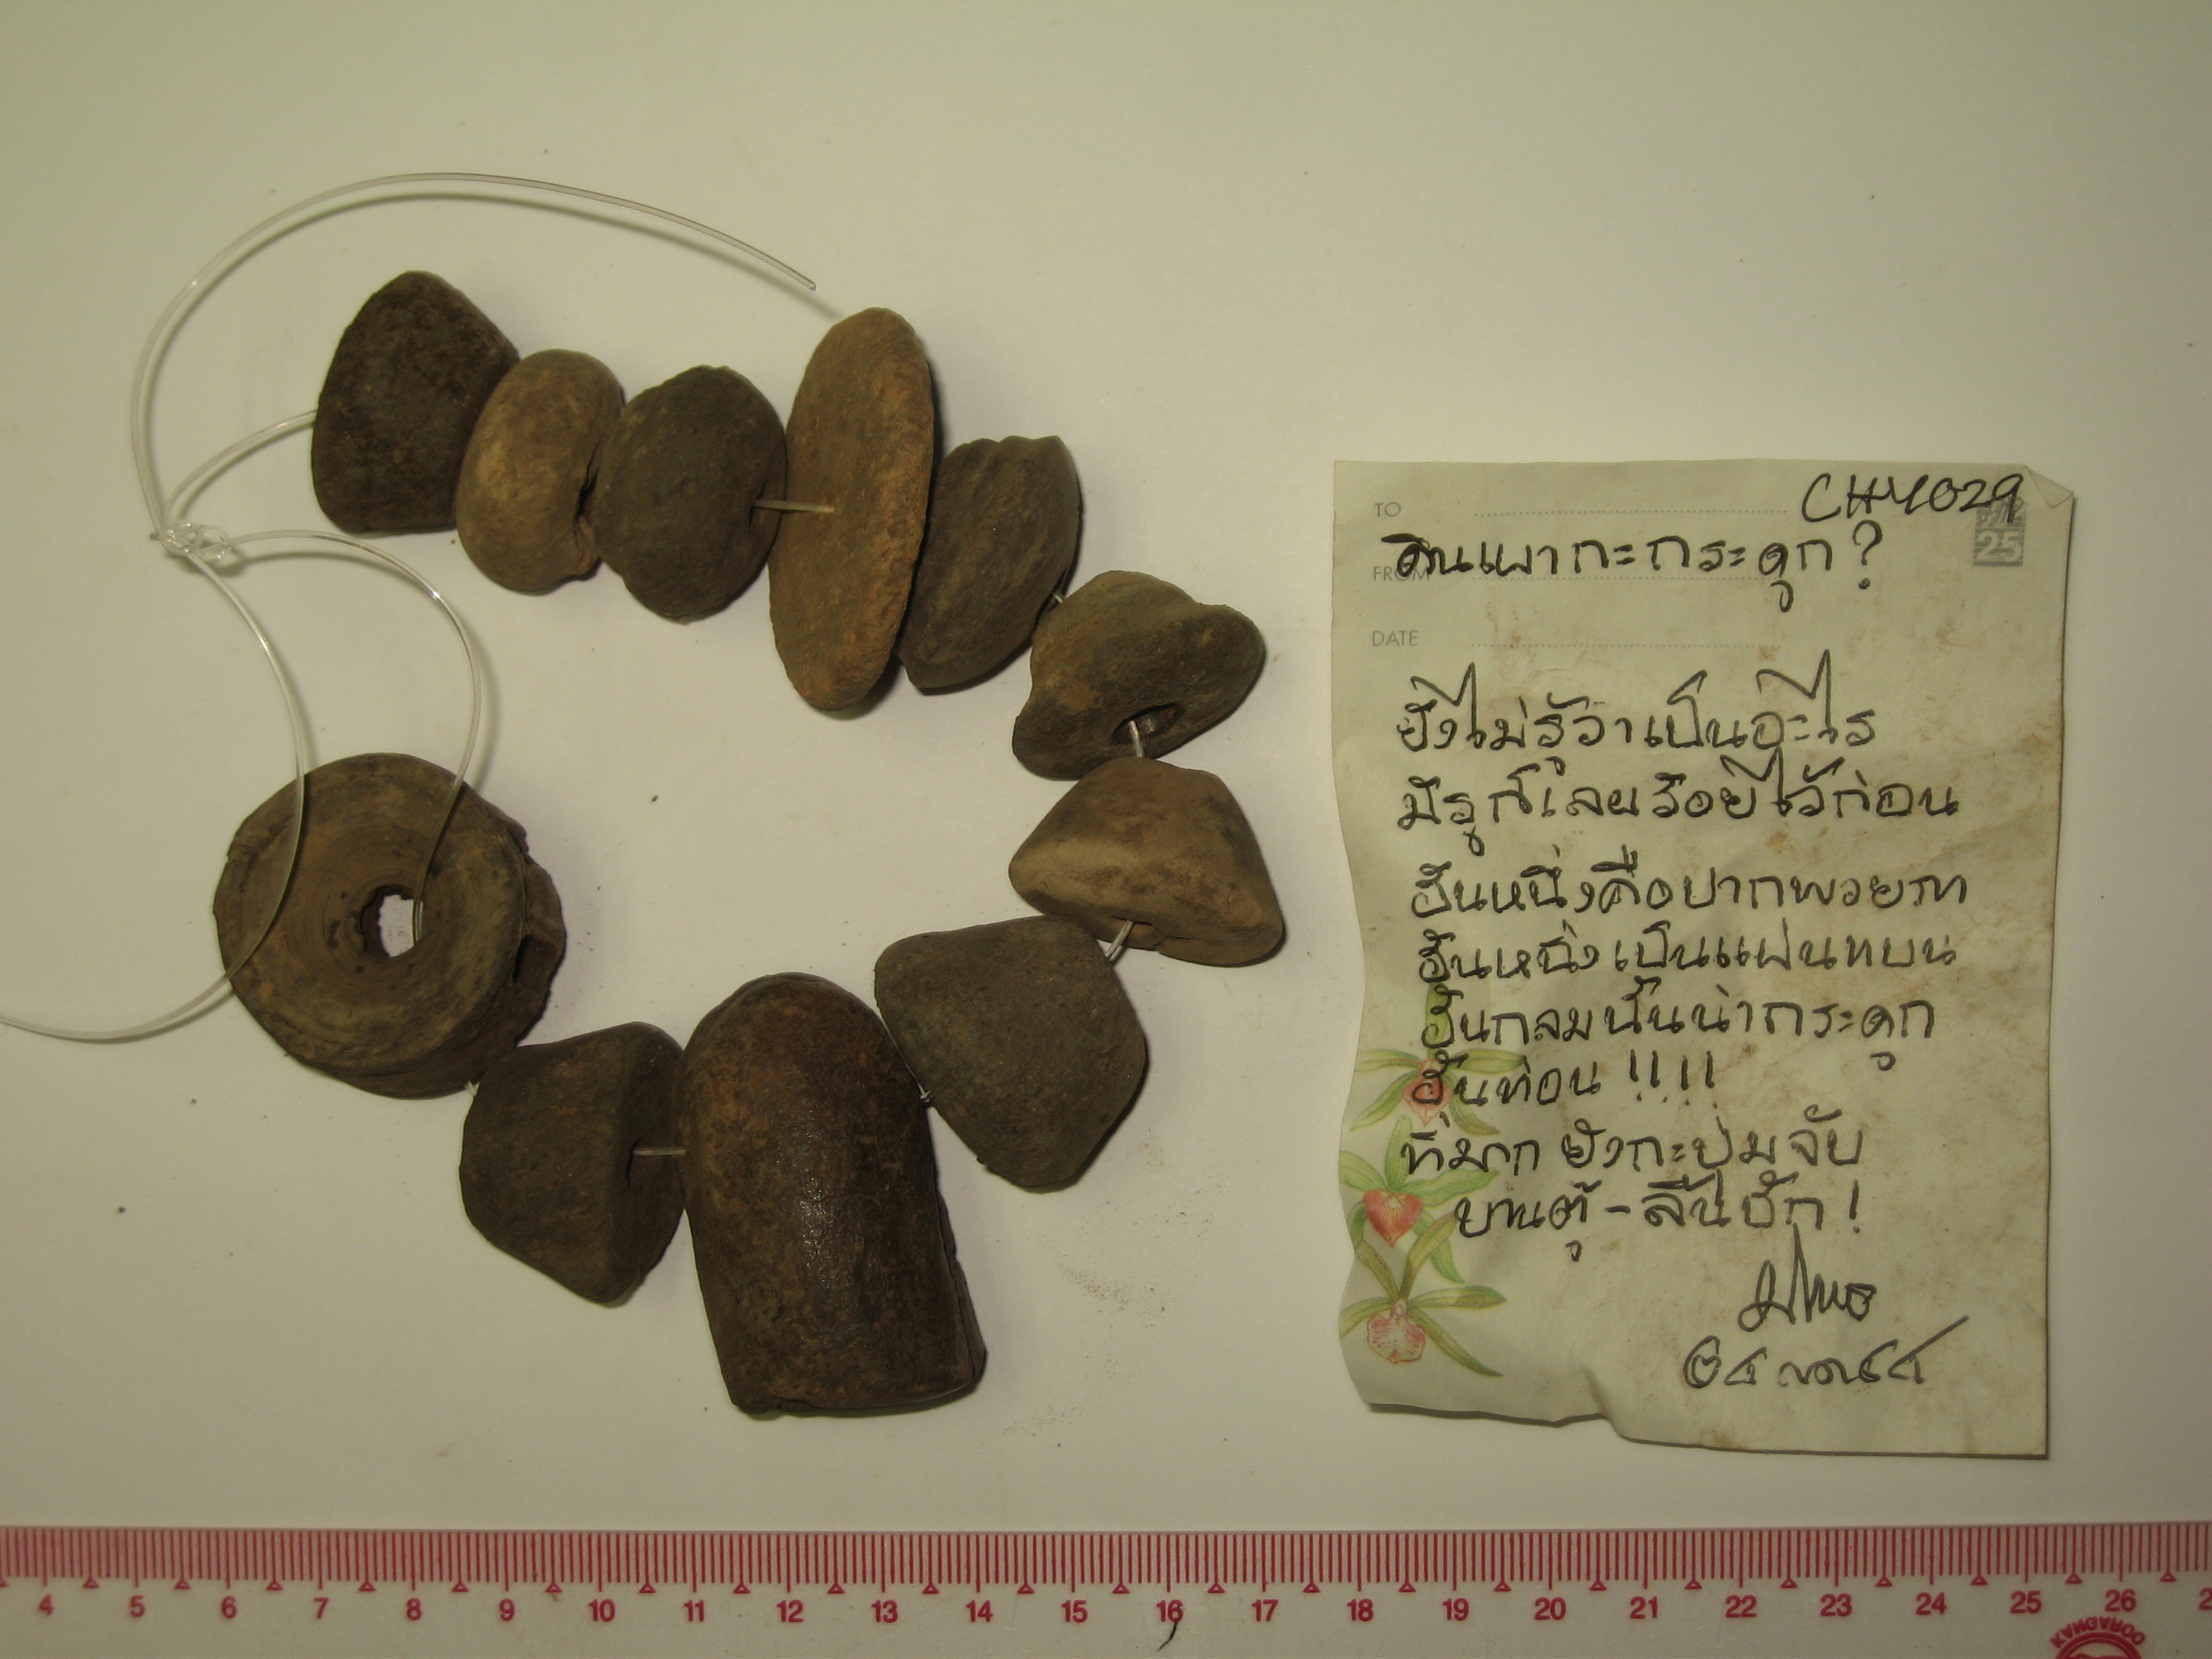 CHY029
TO
ดินเผากะกระดูก?
FROM
25
DATE
ยังไม่รู้ว่าเป็นอะไร
มีรูก็เลยร้อยไว้ก่อน
อันหนึ่งคือปากพวยกา
อันหนึ่งเป็นแผ่นทบน
อันกลมนั้นน่ากระดูก
อันท่อน !!!!
ที่มาก ยังกะปุ่มจับ
บานตู้-ลิ้นชัก!
4 5 6 7 8 9 10 11 12 13 14 15 16 17 18 19 20 21 22 23 24 25 26
KANGAROO